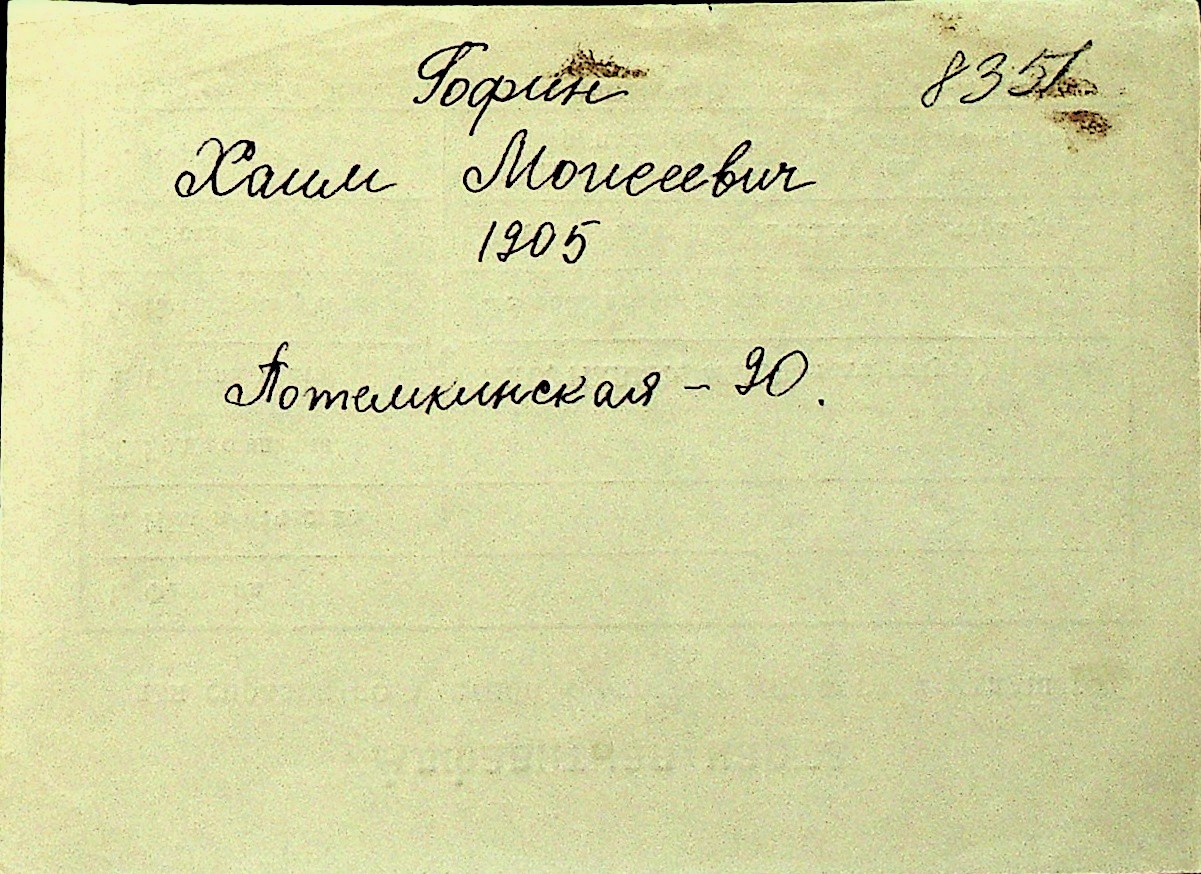 Гофин 8351
Хаим Моисеевич
1905
Потемкинская - 90.